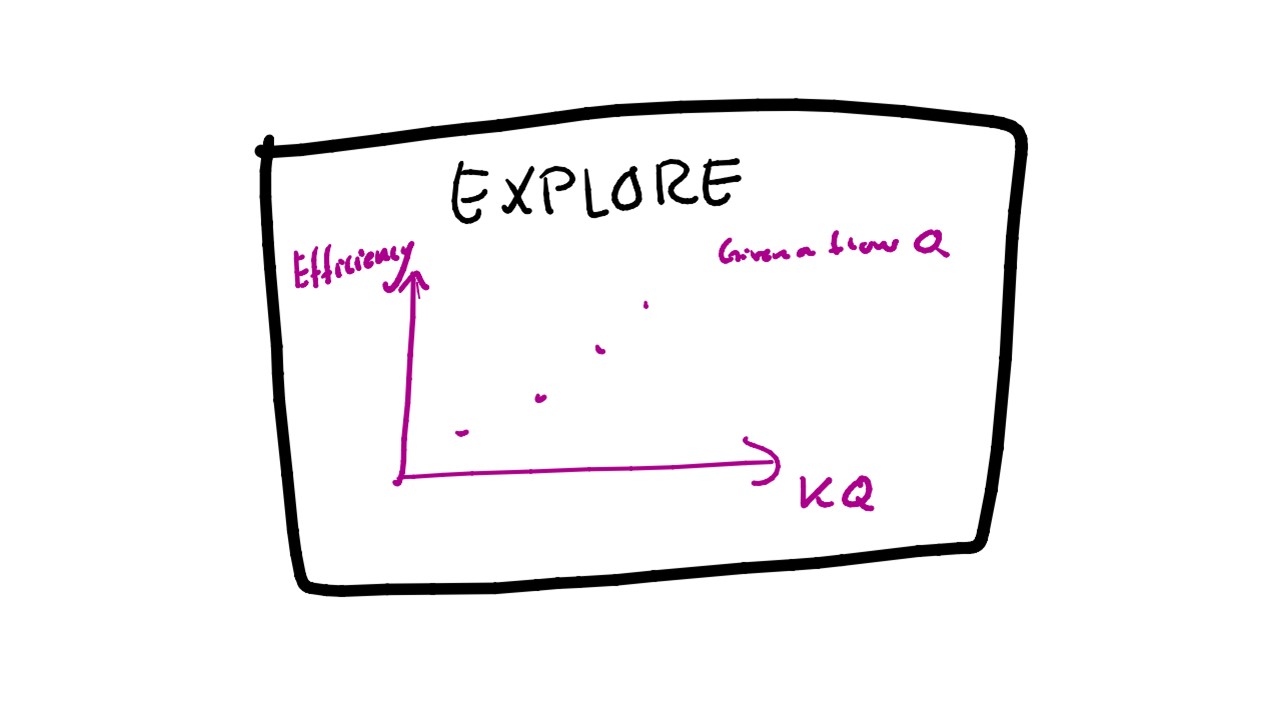 EXPLORE
Efficiency
Given a flow Q
KQ